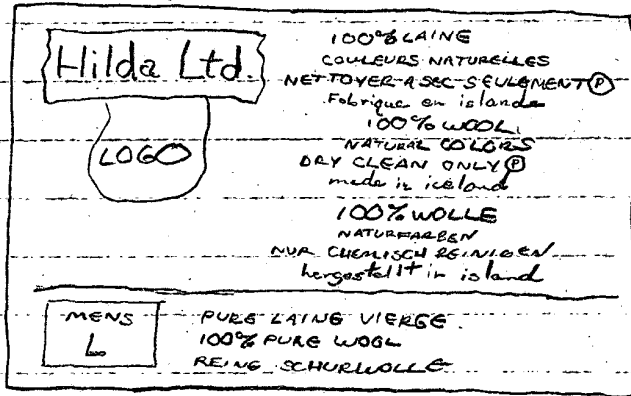 Hilda Ltd.
LOGO
100% LAINE
COULEURS NATURELLES
NETTOYER A SEC SEULEMENT Ⓟ
Fabrique en islande
100% WOOL
NATURAL COLORS
DRY CLEAN ONLY Ⓟ
made in iceland
100% WOLLE
NATURFARBEN
NUR CHEMISCH REINIGEN
hergestellt in island
MENS
L
PURE LAINE VIERGE
100% PURE WOOL
REINE SCHURWOLLE